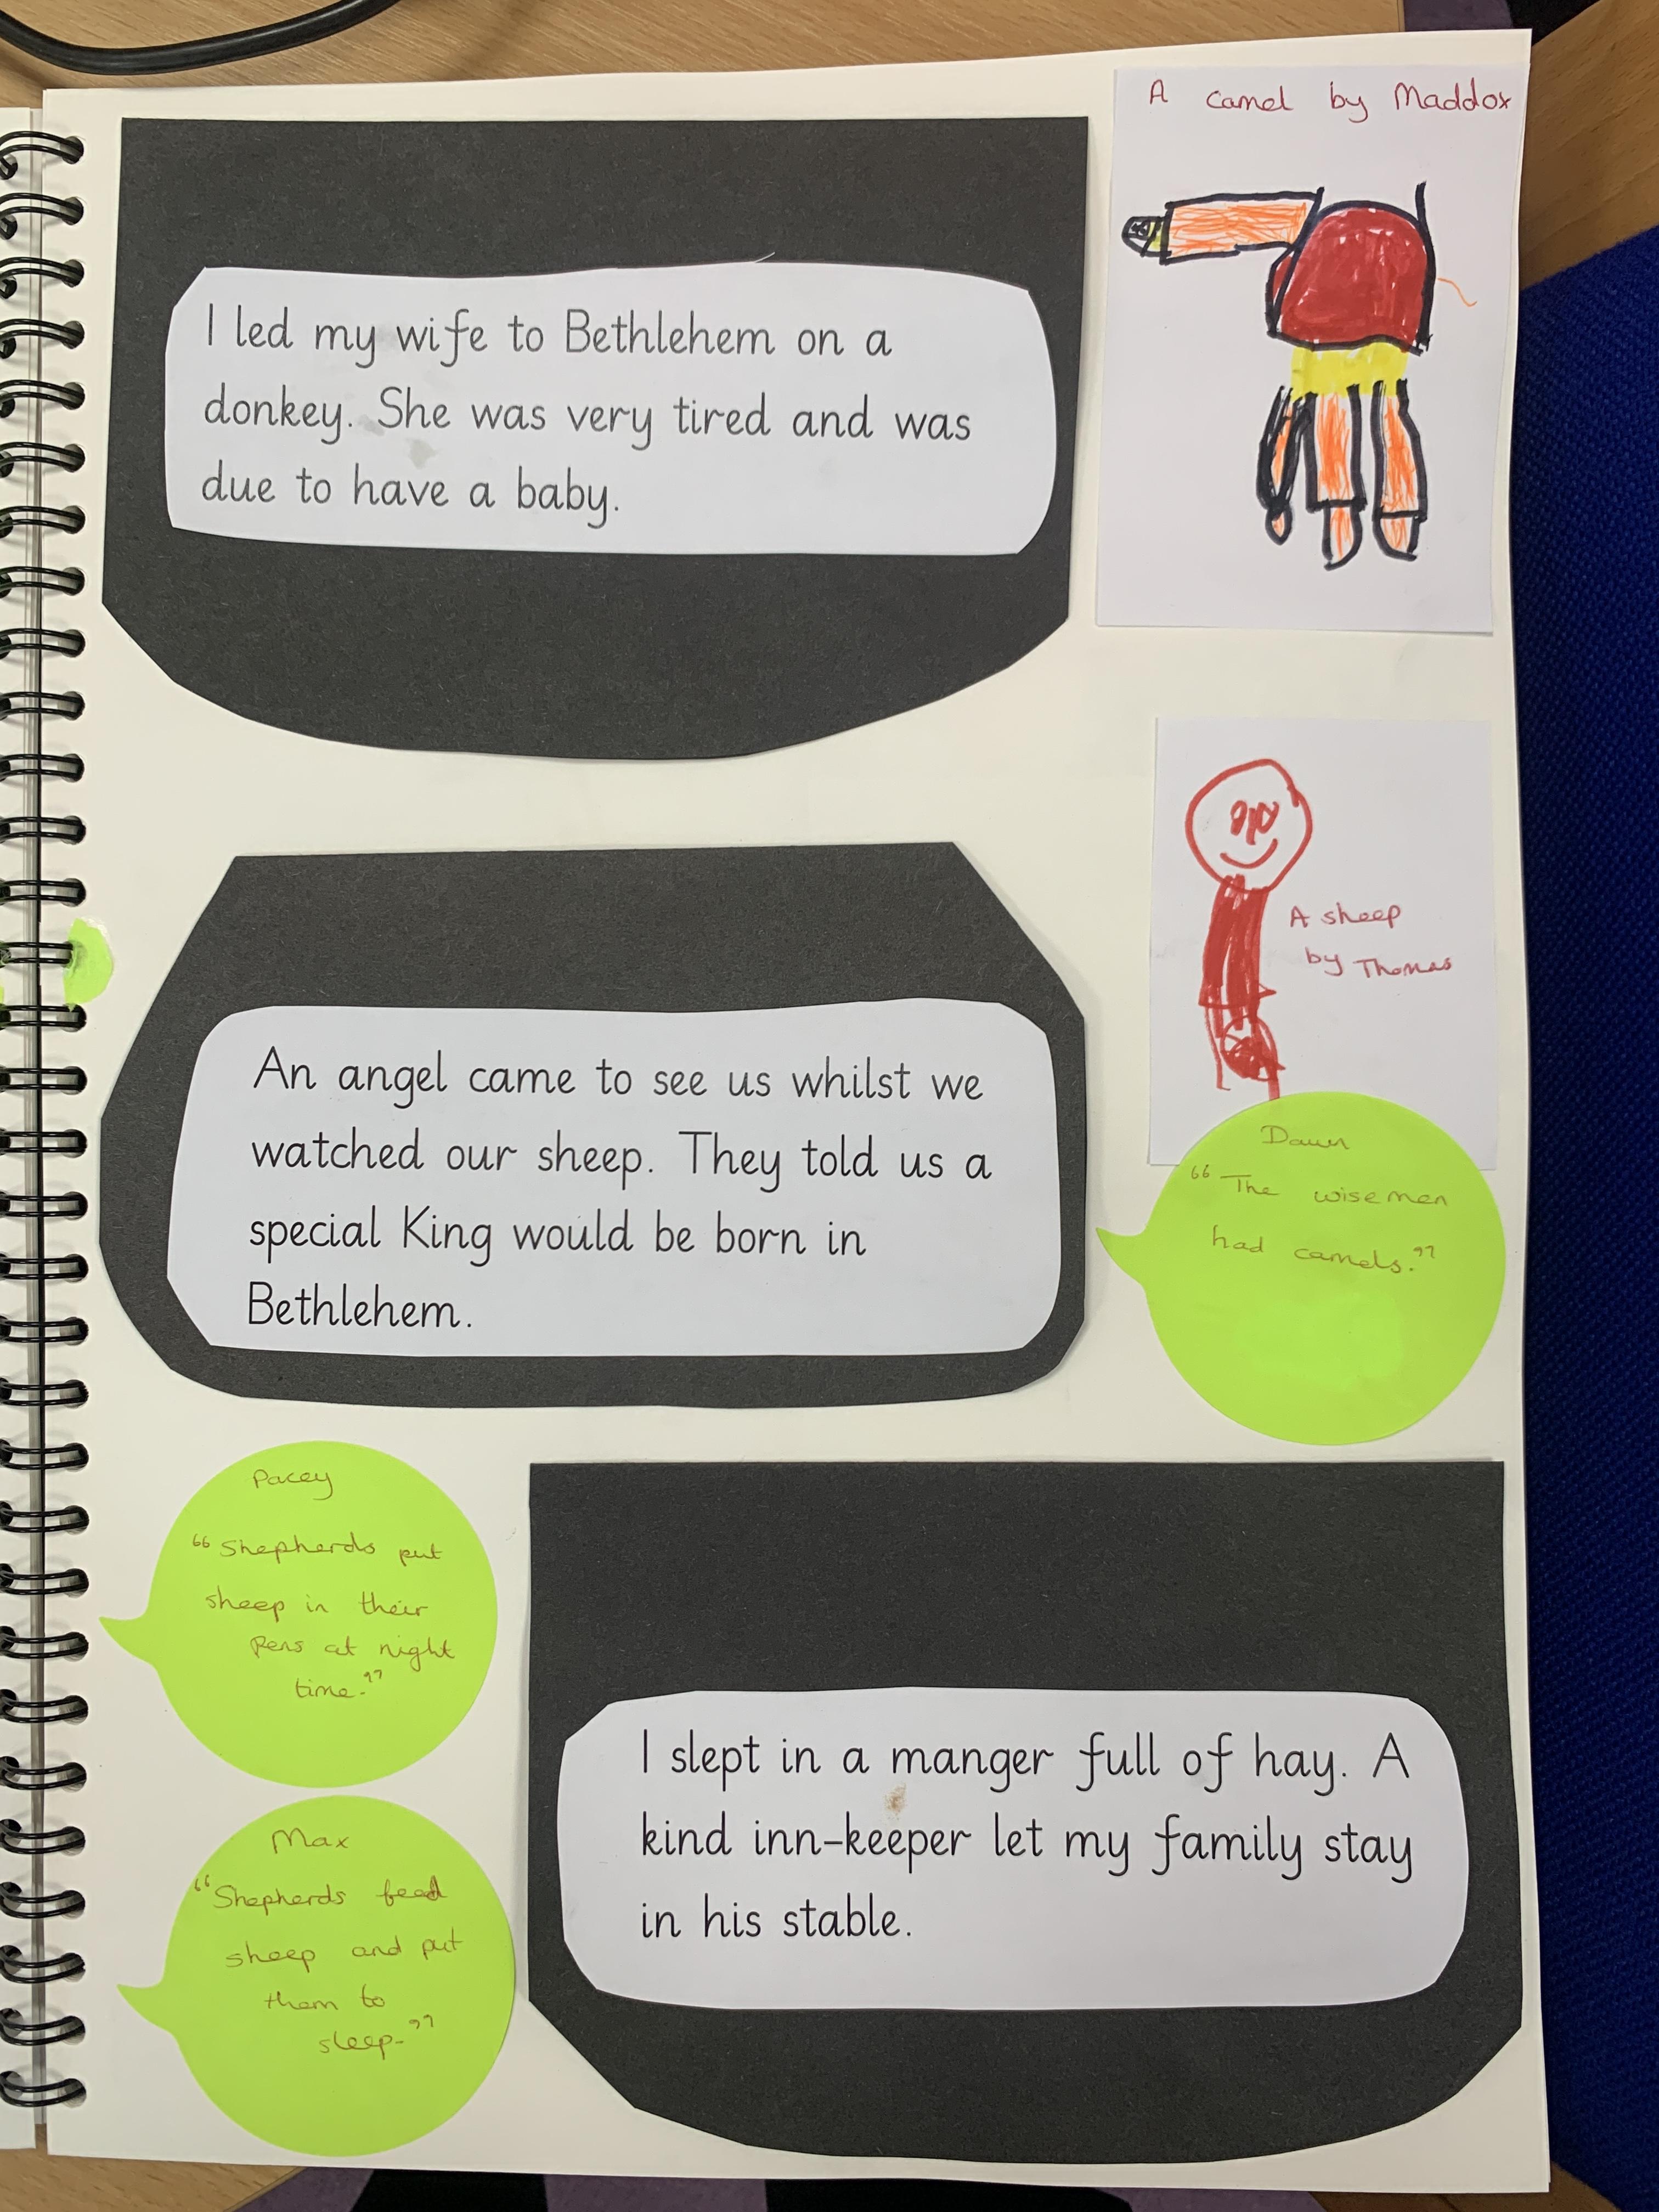 A camel by Maddox
I led my wife to Bethlehem on a
donkey. She was very tired and was
due to have a baby.
A sheep
by Thomas
An angel came to see us whilst we
watched our sheep. They told us a
special King would be born in
Bethlehem.
Dawn
“The wise men
had camels.”
Pacey
“Shepherds put
sheep in their
pens at night
time.”
Max
“Shepherds feed
sheep and put
them to
sleep.”
I slept in a manger full of hay. A
kind inn-keeper let my family stay
in his stable.